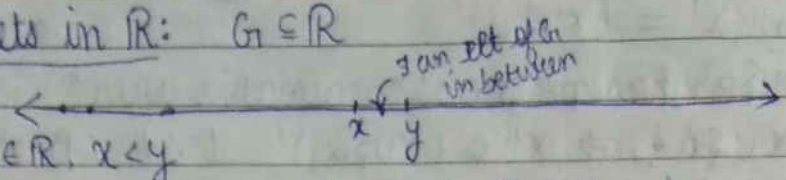 ets in ℝ: G ⊆ ℝ
∃ an elt of G
in between
x y
∈ ℝ. x < y